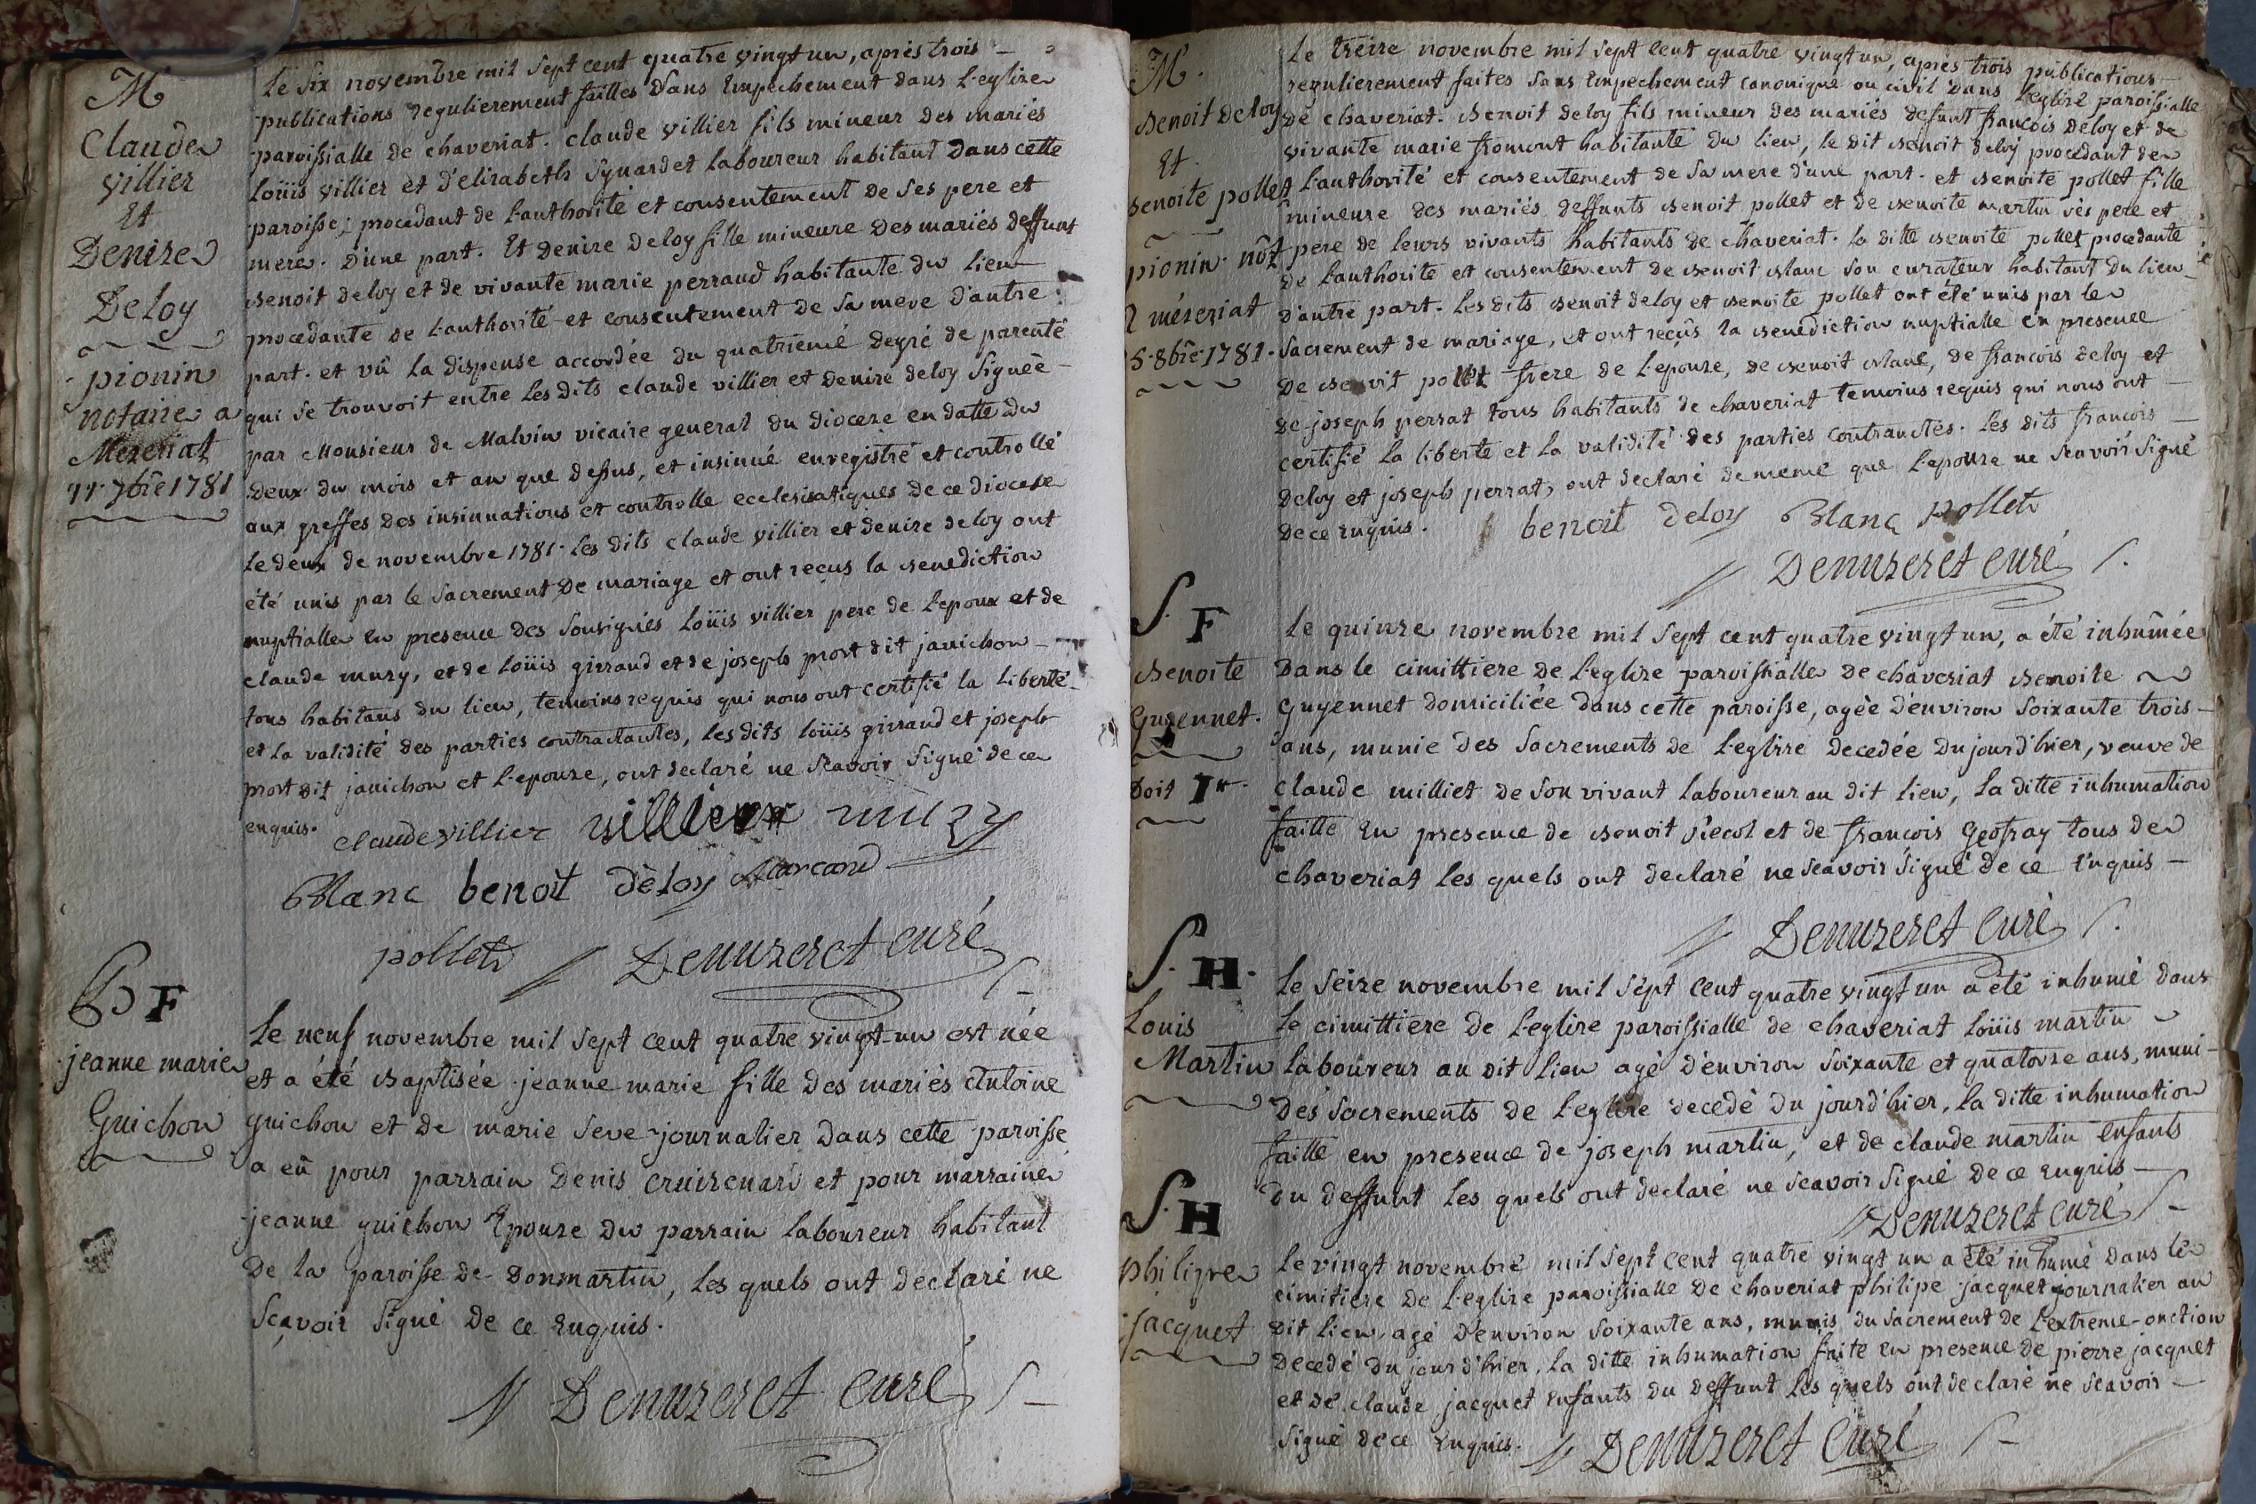 M
Claude
villier
Et
Denize
Deloy
pionin
notaire a
Mezeriat
11. 7bre 1781
Le six novembre mil sept cent quatre vingt un, après trois
publications regulierement faittes sans Empechement dans l'eglize
paroissialle de chaveriat. claude villier fils mineur des mariés
Loüis villier et d'elizabeth Synardet laboureur habitant dans cette
paroisse; procedant de l'authorité et consentement de ses pere et
mere. d'une part. Et Denize Deloy fille mineure des mariés deffunt
Benoit deloy et de vivante marie perraud habitante du lieu
procedante de l'authorité et consentement de sa mere d'autre
part. et vû la dispense accordée du quatriemé degré de parenté
qui se trouvoit entre les dits claude villier et denize deloy signeè
par Monsieur de Malvin vicaire general du dioceze en datte du
deux du mois et an que dessus, et insinué enregistré et controllé
aux greffes des insinuations et controlle ecclesisatiques de ce dioceze
le deux de novembre 1781. les dits claude villier et denize deloy ont
été unis par le sacrement de mariage et ont recus la Benediction
nuptialle en presence des sousignés Loüis villier pere de l'epoux et de
claude muzy, et de Loüis girraud et de joseph prost dit janichon
tous habitans du lieu, temoins requis qui nous ont certifié la liberté
et la validité des parties contractantes, les dits loüis girraud et joseph
prost dit janichon et l'epouze, ont declaré ne scavoir signé de ce
enquis. claude villier villier muzy
Blanc benoit dèloy Marcand
pollet Denuzeret curé
B F
jeanne marie
Guichon
Le neuf novembre mil sept cent quatre vingt-un est née
et a été Baptisée jeanne-marie fille des mariès Antoine
guichon et de marie seve journalier dans cette paroisse
a eû pour parrain Denis cruizenard et pour marraine
jeanne guichon Epouze du parrain laboureur habitant
de la paroisse de Donmartin, les quels ont declaré ne
sçavoir signé de ce Enquis.
Denuzeret curé
M.
Benoit deloy
Et.
Benoite pollet
pionin not
a mézeriat
5. 8bre 1781.
Le treize novembre mil sept cent quatre vingt un, après trois publications
regulierement faites sans Empechement canonique ou civil dans l'eglize paroissialle
de chaveriat. Benoit deloy fils mineur des mariés defunt francois deloy et de
vivante marie fromont habitante du lieu, le dit Benoit deloy procedant de
l'authorité et consentement de sa mere d'une part. et Benoite pollet fille
mineure des mariés deffunts Benoit pollet et de Benoite martin ses pere et
pere de leurs vivants habitants de chaveriat. la ditte Benoite pollet procedante
de l'authorité et consentement de Benoit Blanc son curateur habitant du lieu
d'autre part. Les dits Benoit deloy et Benoite pollet ont été unis par le
sacrement de mariage, et ont reçûs la Benediction nuptialle en presence
de Benoit pollet frere de l'epouze, de Benoit Blanc, de francois deloy et
de joseph perrat tous habitants de chaveriat temoins requis qui nous ont
certifié la liberté et la validité des parties contractés. les dits francois
deloy et joseph perrat, ont declaré de meme que l'epouze ne scavoir signé
de ce Enquis. benoit deloy Blanc pollet
Denuzeret curé
S. F
Benoite
Guyennet.
Doit 1#
Le quinze novembre mil sept cent quatre vingt un, a été inhûmée
dans le cimittiere de l'eglize paroissialle de chaveriat Benoite
Guyennet domiciliée dans cette paroisse, agée d'environ soixante trois
ans, munie des sacrements de l'eglize decedée du jourd'hier, veuve de
claude milliet de son vivant laboureur au dit lieu, la ditte inhumation
faitte en presence de Benoit siecol et de francois Geofray tous de
chaveriat les quels ont declaré ne scavoir signé de ce Enquis
Denuzeret curé
S. H.
Louis
Martin
Le seize novembre mil sept cent quatre vingt un a été inhumé dans
le cimittiere de l'eglize paroissialle de chaveriat loüis martin
laboureur au dit lieu agé d'environ soixante et quatorze ans, muni
des sacrements de l'eglize decedé du jourd'hier, la ditte inhumation
faitte en presence de joseph martin, et de claude martin enfants
du deffunt les quels ont declaré ne scavoir signé de ce Enquis
Denuzeret curé
S. H
philipe
jacquet
Le vingt novembre mil sept cent quatre vingt un a été inhumé dans le
cimitiere de l'eglize paroissialle de chaveriat philipe jacquet journalier au
dit lieu, agé d'environ soixante ans, munis du sacrement de l'extreme-onction
decedé du jour d'hier. la ditte inhumation faite en presence de pierre jacquet
et de claude jacquet enfants du deffunt les quels ont declaré ne scavoir
signé de ce Enquis. Denuzeret curé